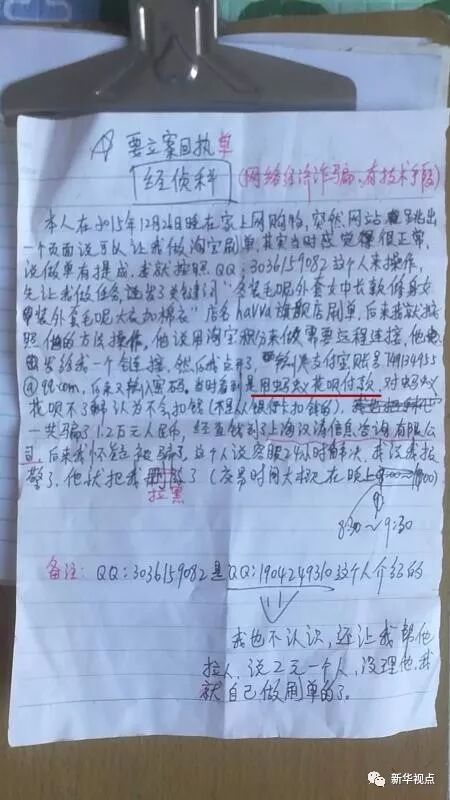 要立案回执单
经侦科
(网络经济诈骗、有技术手段)
本人在2015年12月26日晚在家上网购物,突然网站跳出
一个页面说可以让我做淘宝刷单,其实当时感觉得很正常,
说做单有提成,我就按照QQ:3036159082这个人来操作,
先让我做任务,还发了关键词“冬装毛呢外套女中长款修身女
装外套毛呢大衣加棉衣”店名haIVa旗舰店刷单,后来我就按
照他的方法操作,他说用淘宝积分来做需要远程连接,他
发给我一个链接,然后我点开了,支付宝账号749134955
@qq.com,后来又输入密码,当时看到是用蚂蚁花呗付款,对蚂蚁
花呗不了解认为不会扣钱(不是从银行卡扣钱的),
一共骗了1.2万元人民币,经查钱到了上海汉涛信息咨询有限公
司,后来我怀疑被骗了,这个人说客服2小时解决,我说我报
警了,他就把我拉黑了(交易时间大概在晚上
8:30~9:30
备注:QQ:3036159082是QQ:1904249310这个人介绍的
我也不认识,还让我帮他
拉人,说2元一个人,没理他,我
就自己做刷单的了。
新华视点